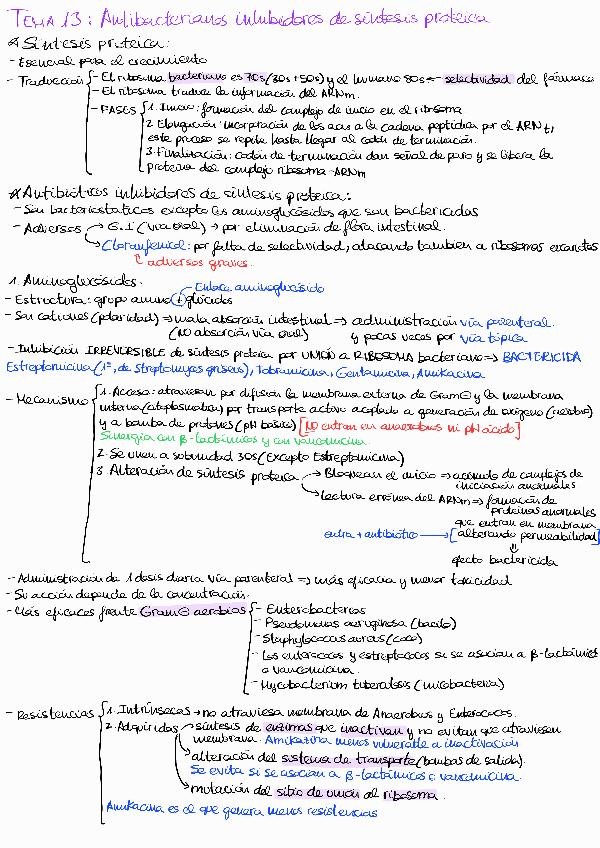 TEMA 13: Antibacterianos inhibidores de síntesis proteica
* Síntesis proteica:
- Esencial para el crecimiento
- Traducción - El ribosoma bacteriano es 70s (30s+50s) y el humano 80s ← selectividad del fármaco
- El ribosoma traduce la información del ARNm.
- FASES 1. Inicio: formación del complejo de inicio en el ribosoma
2. Elongación: incorporación de los aas a la cadena peptídica por el ARNt,
este proceso se repite hasta llegar al codón de terminación.
3. Finalización: codón de terminación dan señal de paro y se libera la
proteína del complejo ribosoma-ARNm
* Antibióticos inhibidores de síntesis proteica:
- Son bacteriostáticos excepto los aminoglucósidos que son bactericidas
- Adversos → G.I (vía oral) → por eliminación de flora intestinal.
→ Cloranfenicol: por falta de selectividad, atacando también a ribosomas eucariotas
adversos graves.
1. Aminoglucósidos. Enlace aminoglucósido
- Estructura: grupo amino + glúcidos
- Son cationes (polaridad) ⇒ mala absorción intestinal ⇒ administración vía parenteral.
(NO absorción vía oral) y pocas veces por vía tópica
- Inhibición IRREVERSIBLE de síntesis proteica por UNIÓN A RIBOSOMA bacteriano ⇒ BACTERICIDA
Estreptomicina (1ª, de Streptomyces griseus), Tobramicina, Gentamicina, Amikacina
- Mecanismo 1. Acceso: atraviesan por difusión la membrana externa de Gram⊖ y la membrana
interna (citoplasmática) por transporte activo acoplado a generación de oxígeno (aerobio)
y a bomba de protones (pH básico) [NO entran en anaerobios ni pH ácido]
Sinergia con β-lactámicos y con vancomicina.
2. Se unen a subunidad 30s (Excepto Estreptomicina)
3. Alteración de síntesis proteica → Bloquean el inicio ⇒ acúmulo de complejos de
iniciación anormales
→ Lectura errónea del ARNm ⇒ formación de
proteínas anormales
que entran en membrana
entra + antibiótico → [alterando permeabilidad]
⇓
efecto bactericida
- Administración de 1 dosis diaria vía parenteral ⇒ más eficacia y menor toxicidad
- Su acción depende de la concentración.
- Más eficaces frente Gram⊖ aerobios - Enterobacterias
- Pseudomonas aeruginosa (bacilo)
- Staphylococcus aureus (coco)
- Los enterococos y estreptococos si se asocian a β-lactámicos
o vancomicina.
- Mycobacterium tuberculosis (micobacteria)
- Resistencias 1. Intrínsecas → no atraviesa membrana de Anaerobios y Enterococos.
2. Adquiridas → síntesis de enzimas que inactivan y no evitan que atraviesen
membrana. Amikacina menos vulnerable a inactivación
→ alteración del sistema de transporte (bombas de salida).
Se evita si se asocian a β-lactámicos o vancomicina.
→ mutación del sitio de unión al ribosoma.
Amikacina es el que genera menos resistencias